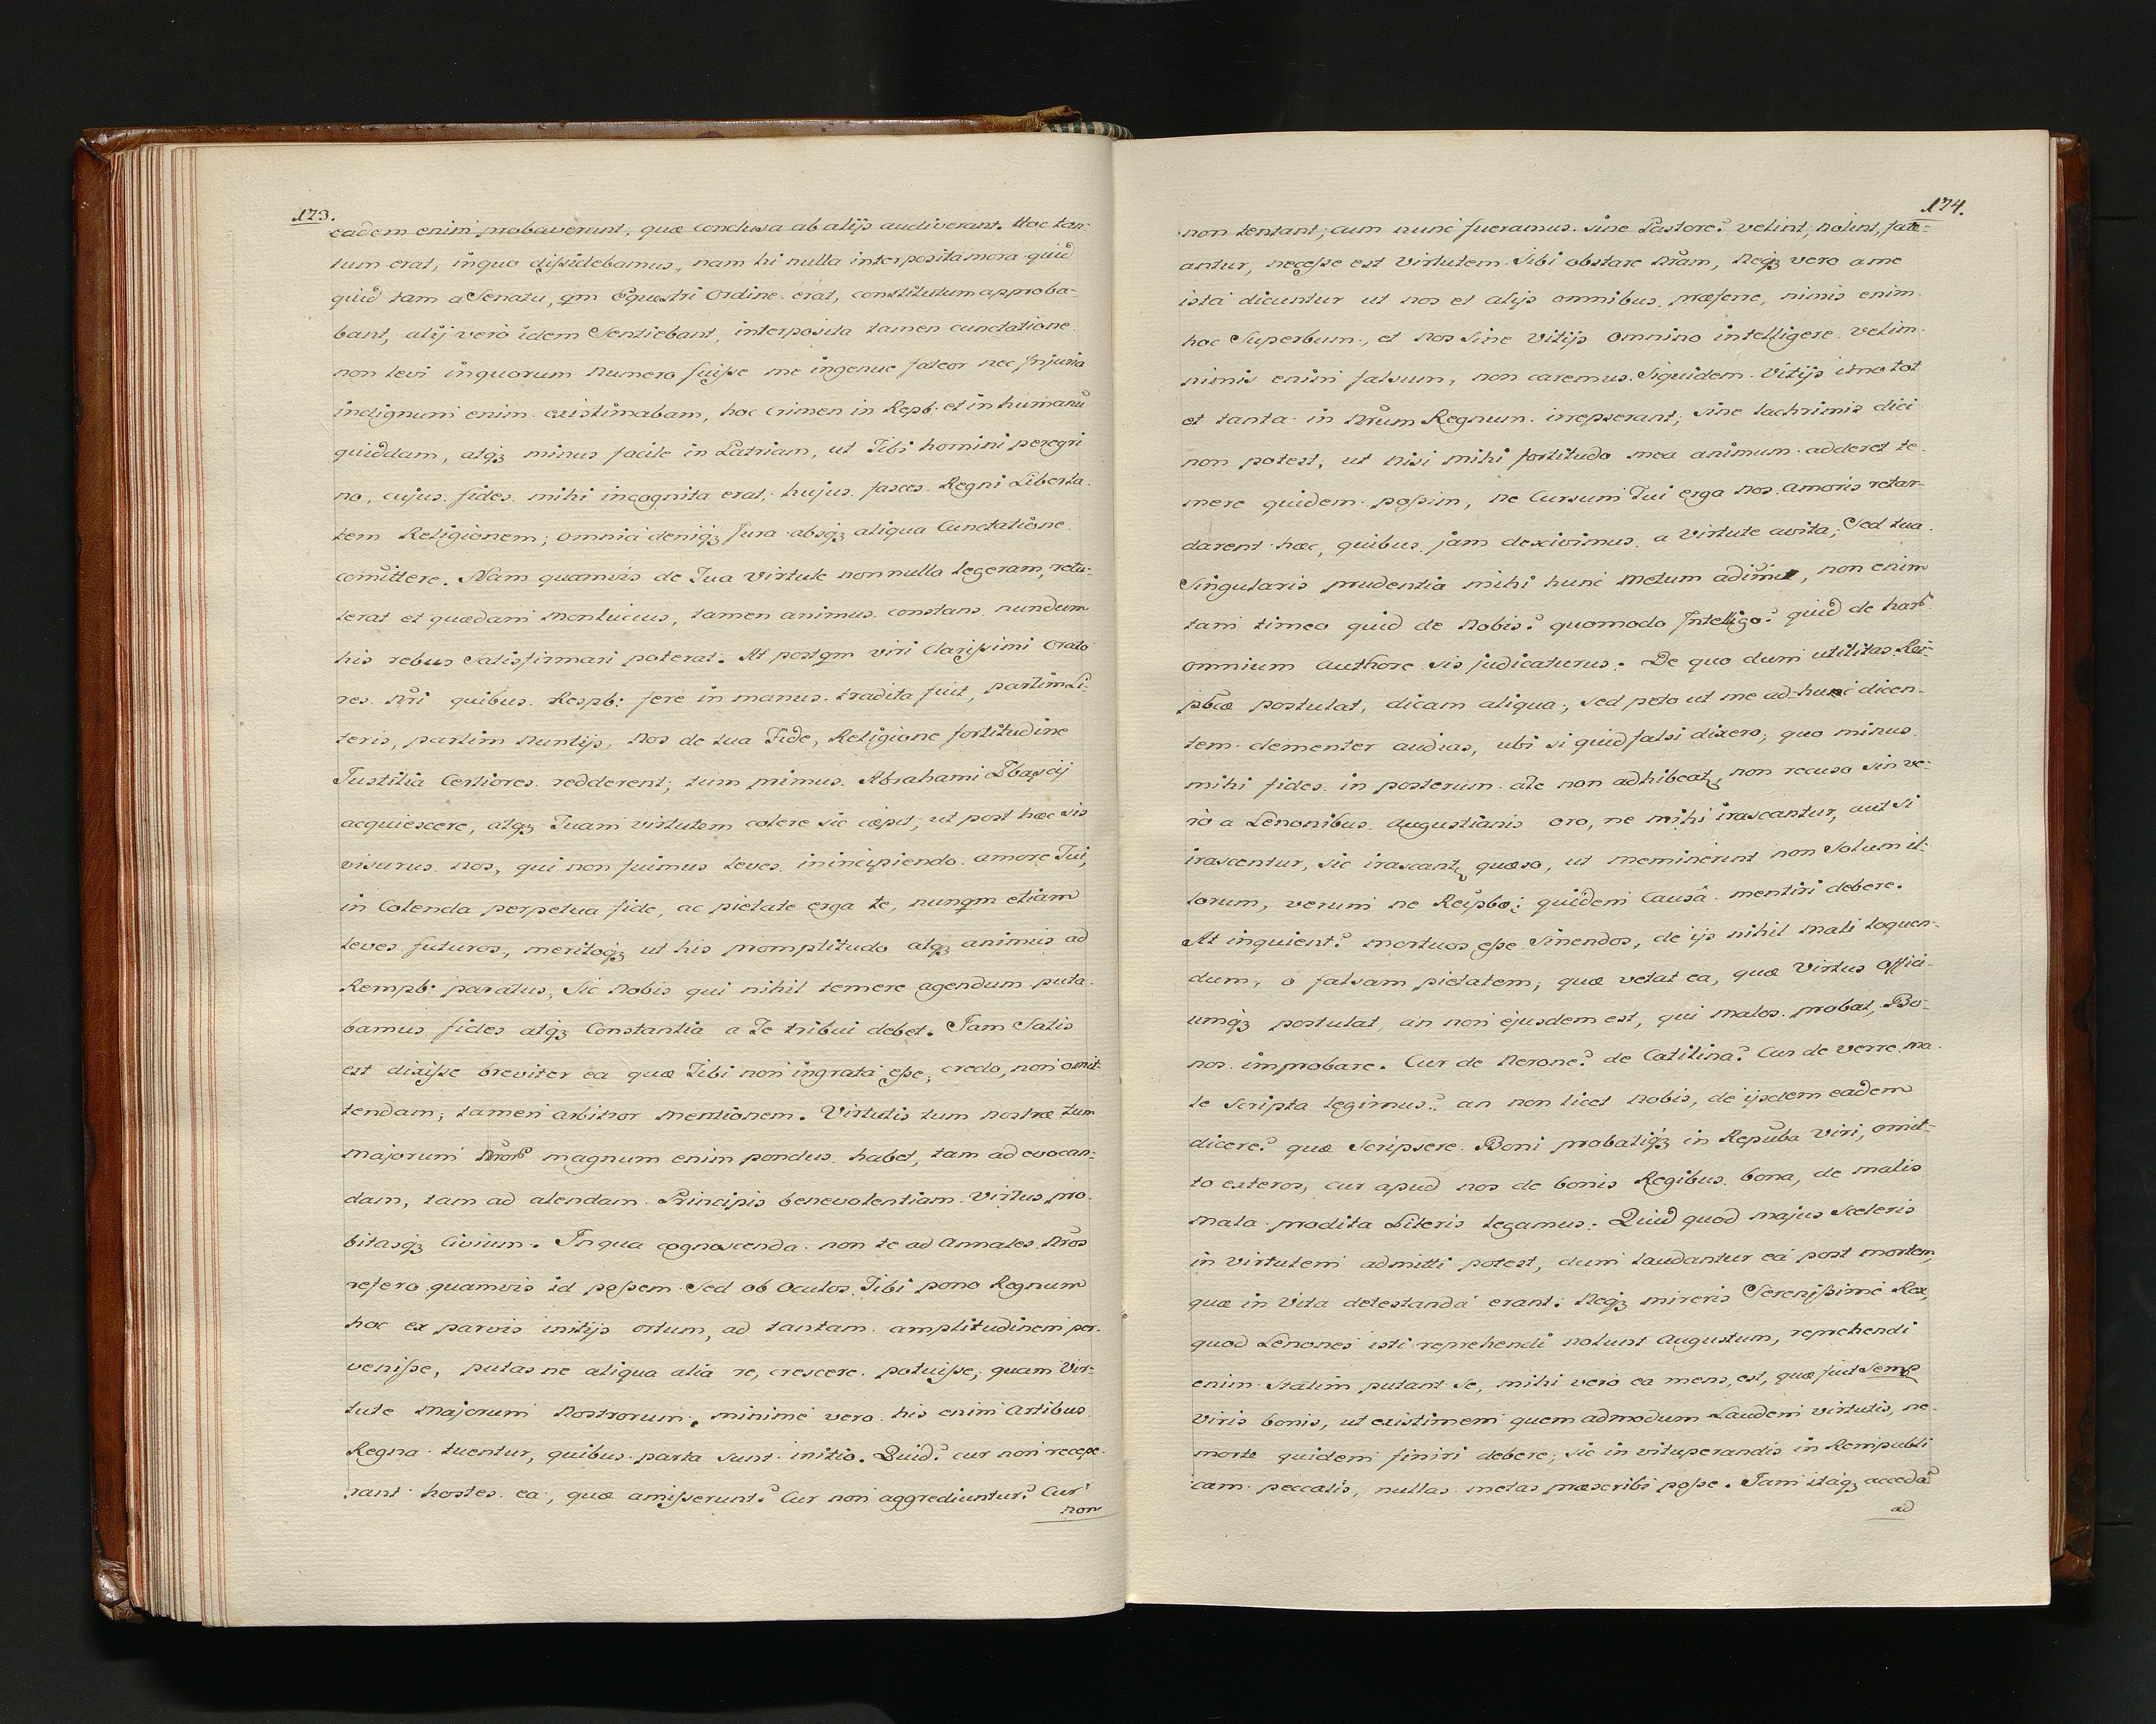 173.
eadem enim probaverunt, quæ conclusa ab alijs audiverant. Hoc tan-
tum erat, in quo dissidebamus, nam hi nulla interposita mora quid
quid tam a Senatu, qm Equestri Ordine erat, constitutum approba-
bant, alij verò idem Sentiebant, interposita tamen cunctatione
non levi in quorum Numero fuisse me ingenue fateor nec Injuria
indignum enim existimabam, hoc Crimen in Repb. et in humanū
quiddam, atqz minus facile in Patriam, ut Tibi homini peregri
no, cujus fides mihi incognita erat, hujus fasces Regni Liberta
tem Religionem; omnia deniqz Jura absqz aliqua Cunctatione
comittere. Nam quamvis de Tua Virtute nonnulla legeram, retu-
lerat et quædam Monlucius, tamen animus constans nundum
his rebus Satis firmari poterat. At postqm viri Clarissimi Orato
res Nri quibus Respb: fere in manus tradita fuit, partim Li-
teris, partim Nuntijs, Nos de tua Fide, Religione fortitudine
Justitia Certiores redderent; tum primus Abrahami Zbascij
acquiescere, atqz Tuam virtutem colere sic cæpit, ut post hæc sis
visurus nos, qui non fuimus leves in incipiendo amore Tui,
in Colenda perpetua fide, ac pietate erga te, nunqm etiam
leves futuros, meritoqz ut his promptitudo atqz animus ad
Rempb: paratus, Sic Nobis qui nihil temere agendum puta-
bamus fides atqz Constantia a Te tribui debet. Jam Satis
est dixisse breviter ea quæ Tibi non ingrata esse, credo, non omit-
tendam; tamen arbitror mentionem. Virtutis tum nostræ tum
majorum Nror magnum enim pondus habet, tam ad evocan-
dam, tam ad alendam Principis benevolentiam Virtus pro-
bitasqz Civium. In qua cognoscenda non te ad Annales Nros
refero quamvis id possem Sed ob Oculos Tibi pono Regnum
hoc ex parvis initijs ortum, ad tantam amplitudinem per-
venisse, putas ne aliqua alia re, crescere potuisse, quam Vir-
tute Majorum Nostrorum, minime vero his enim Artibus
Regna tuentur, quibus parta sunt initio. Quid? cur non recepe-
rant hostes ea, quæ amisserunt? Cur non aggrediuntur? Cur
non
174.
non tentant; cum nunc fueramus sine Pastore? velint, nolint, fate-
antur, necesse est Virtutem Sibi obstare Nram, Neqz vero a me
ista dicuntur ut nos et alijs omnibus præferre, nimis enim
hoc Superbum, et Nos Sine Vitijs omnino intelligere velim
nimis enim falsum, non caremus. Siquidem Vitijs imo tot
et tanta in Nrum Regnum irrepserant, sine lachrimis dici
non potest, ut nisi mihi fortitudo mea animum adderet te-
mere quidem possim, ne Cursum Tui erga nos amoris retar-
darent hæc, quibus jam descivimus a Virtute avita; Sed tua
Singularis prudentia mihi hunc metum adimit, non enim
tam timeo quid de Nobis? quomodo Intelligo? quid de har
omnium Authore sis judicaturus. De quo dum utilitas Rei-
pbcæ postulat, dicam aliqua, sed peto ut me ad hunc dicen-
tem clementer audias, ubi si quid falsi dixero; quo minus
mihi fides in posterum a te non adhibeatr non recuso sin ve-
rò a Lenonibus Augustianis oro, ne mihi irascantur, aut si
irascentur, sic irascantr quæso, ut meminerint non Solum il-
lorum, verum ne Reipbæ: quidem Causâ mentiri debere.
At inquient? mortuos esse Sinendos, de ijs nihil mali loquen-
dum, o falsam pietatem, quæ vetat ea, quæ Virtus Offici-
umqz postulat, an non ejusdem est, qui malos probat, Bo-
nos improbare. Cur de Nerone? de Catilina? Cur de verre ma
le scripta legimus? an non licet Nobis, de ijsdem eadem
dicere? quæ Scripsere Boni probatiqz in Repuba Viri, omit-
to exteros, cur apud nos de bonis Regibus bona, de malis
mala prodita Literis legamus. Quid quod majus Sceleris
in Virtutem admitti potest, dum laudantur ea post mortem,
quæ in Vita detestanda erant. Neqz mireris Serenissime Rex,
quod Lenones isti reprehendi nolunt Augustum, reprehendi
enim Statim putant Se, mihi vero ea mens, est, quæ fuit Semp
Viris bonis, ut existimem quem admodum Laudem virtutis, ne
morte quidem finiri debere, sic in vituperandis in Rempubli
cam peccatis, nullas metas præscribi posse. Jam itaqz accedā
ad